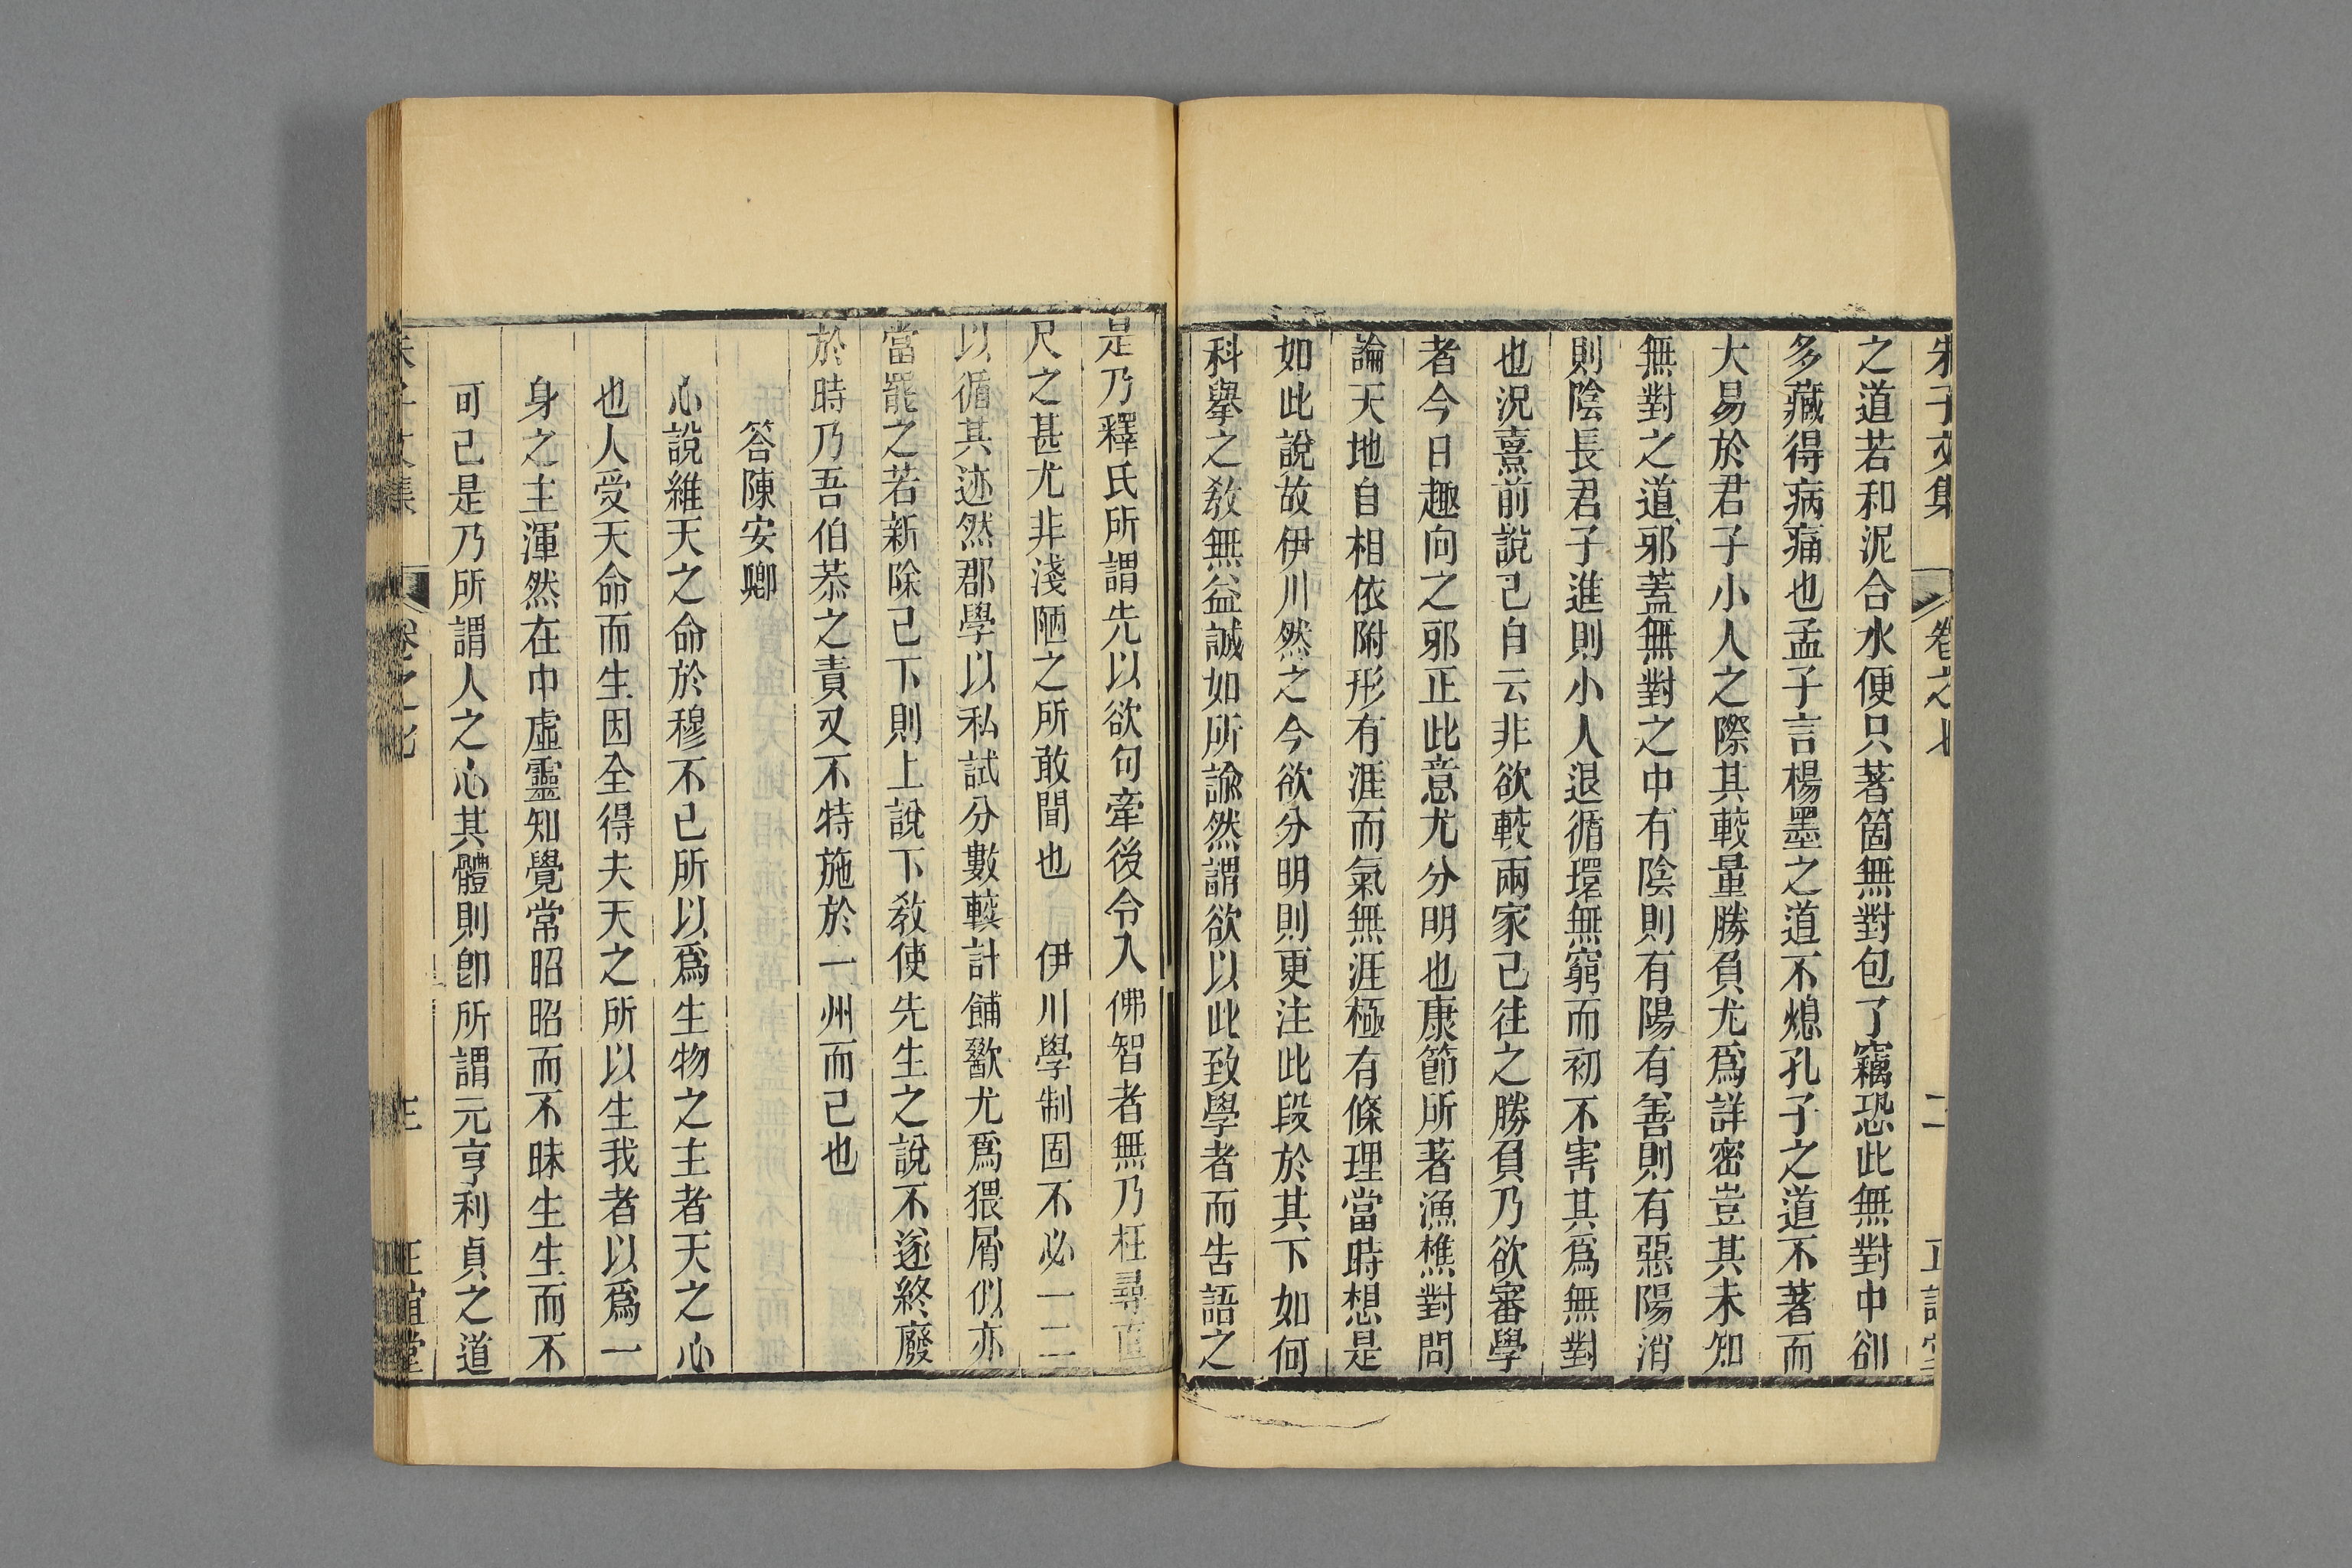 朱子文集 卷之七 二 正誼堂
之道若和泥合水便只著箇無對包了竊恐此無對中卻
多藏得病痛也孟子言楊墨之道不熄孔子之道不著而
大易於君子小人之際其較量勝負尤爲詳密豈其未知
無對之道邪蓋無對之中有陰則有陽有善則有惡陽消
則陰長君子進則小人退循環無窮而初不害其爲無對
也況熹前說已自云非欲較兩家已往之勝負乃欲審學
者今日趣向之邪正此意尤分明也康節所著漁樵對問
論天地自相依附形有涯而氣無涯極有條理當時想是
如此說故伊川然之今欲分明則更注此段於其下如何
科舉之敎無益誠如所諭然謂欲以此致學者而告語之
是乃釋氏所謂先以欲句牽後令入佛智者無乃枉尋直
尺之甚尤非淺陋之所敢聞也 伊川學制固不必一二
以循其迹然郡學以私試分數較計餔歠尤爲猥屑似亦
當罷之若新除已下則上說下敎使先生之說不遂終廢
於時乃吾伯恭之責又不特施於一州而已也
答陳安卿
心說維天之命於穆不已所以爲生物之主者天之心
也人受天命而生因全得夫天之所以生我者以爲一
身之主渾然在中虛靈知覺常昭昭而不昧生生而不
可已是乃所謂人之心其體則卽所謂元亨利貞之道
朱子文集 卷之七 正誼堂